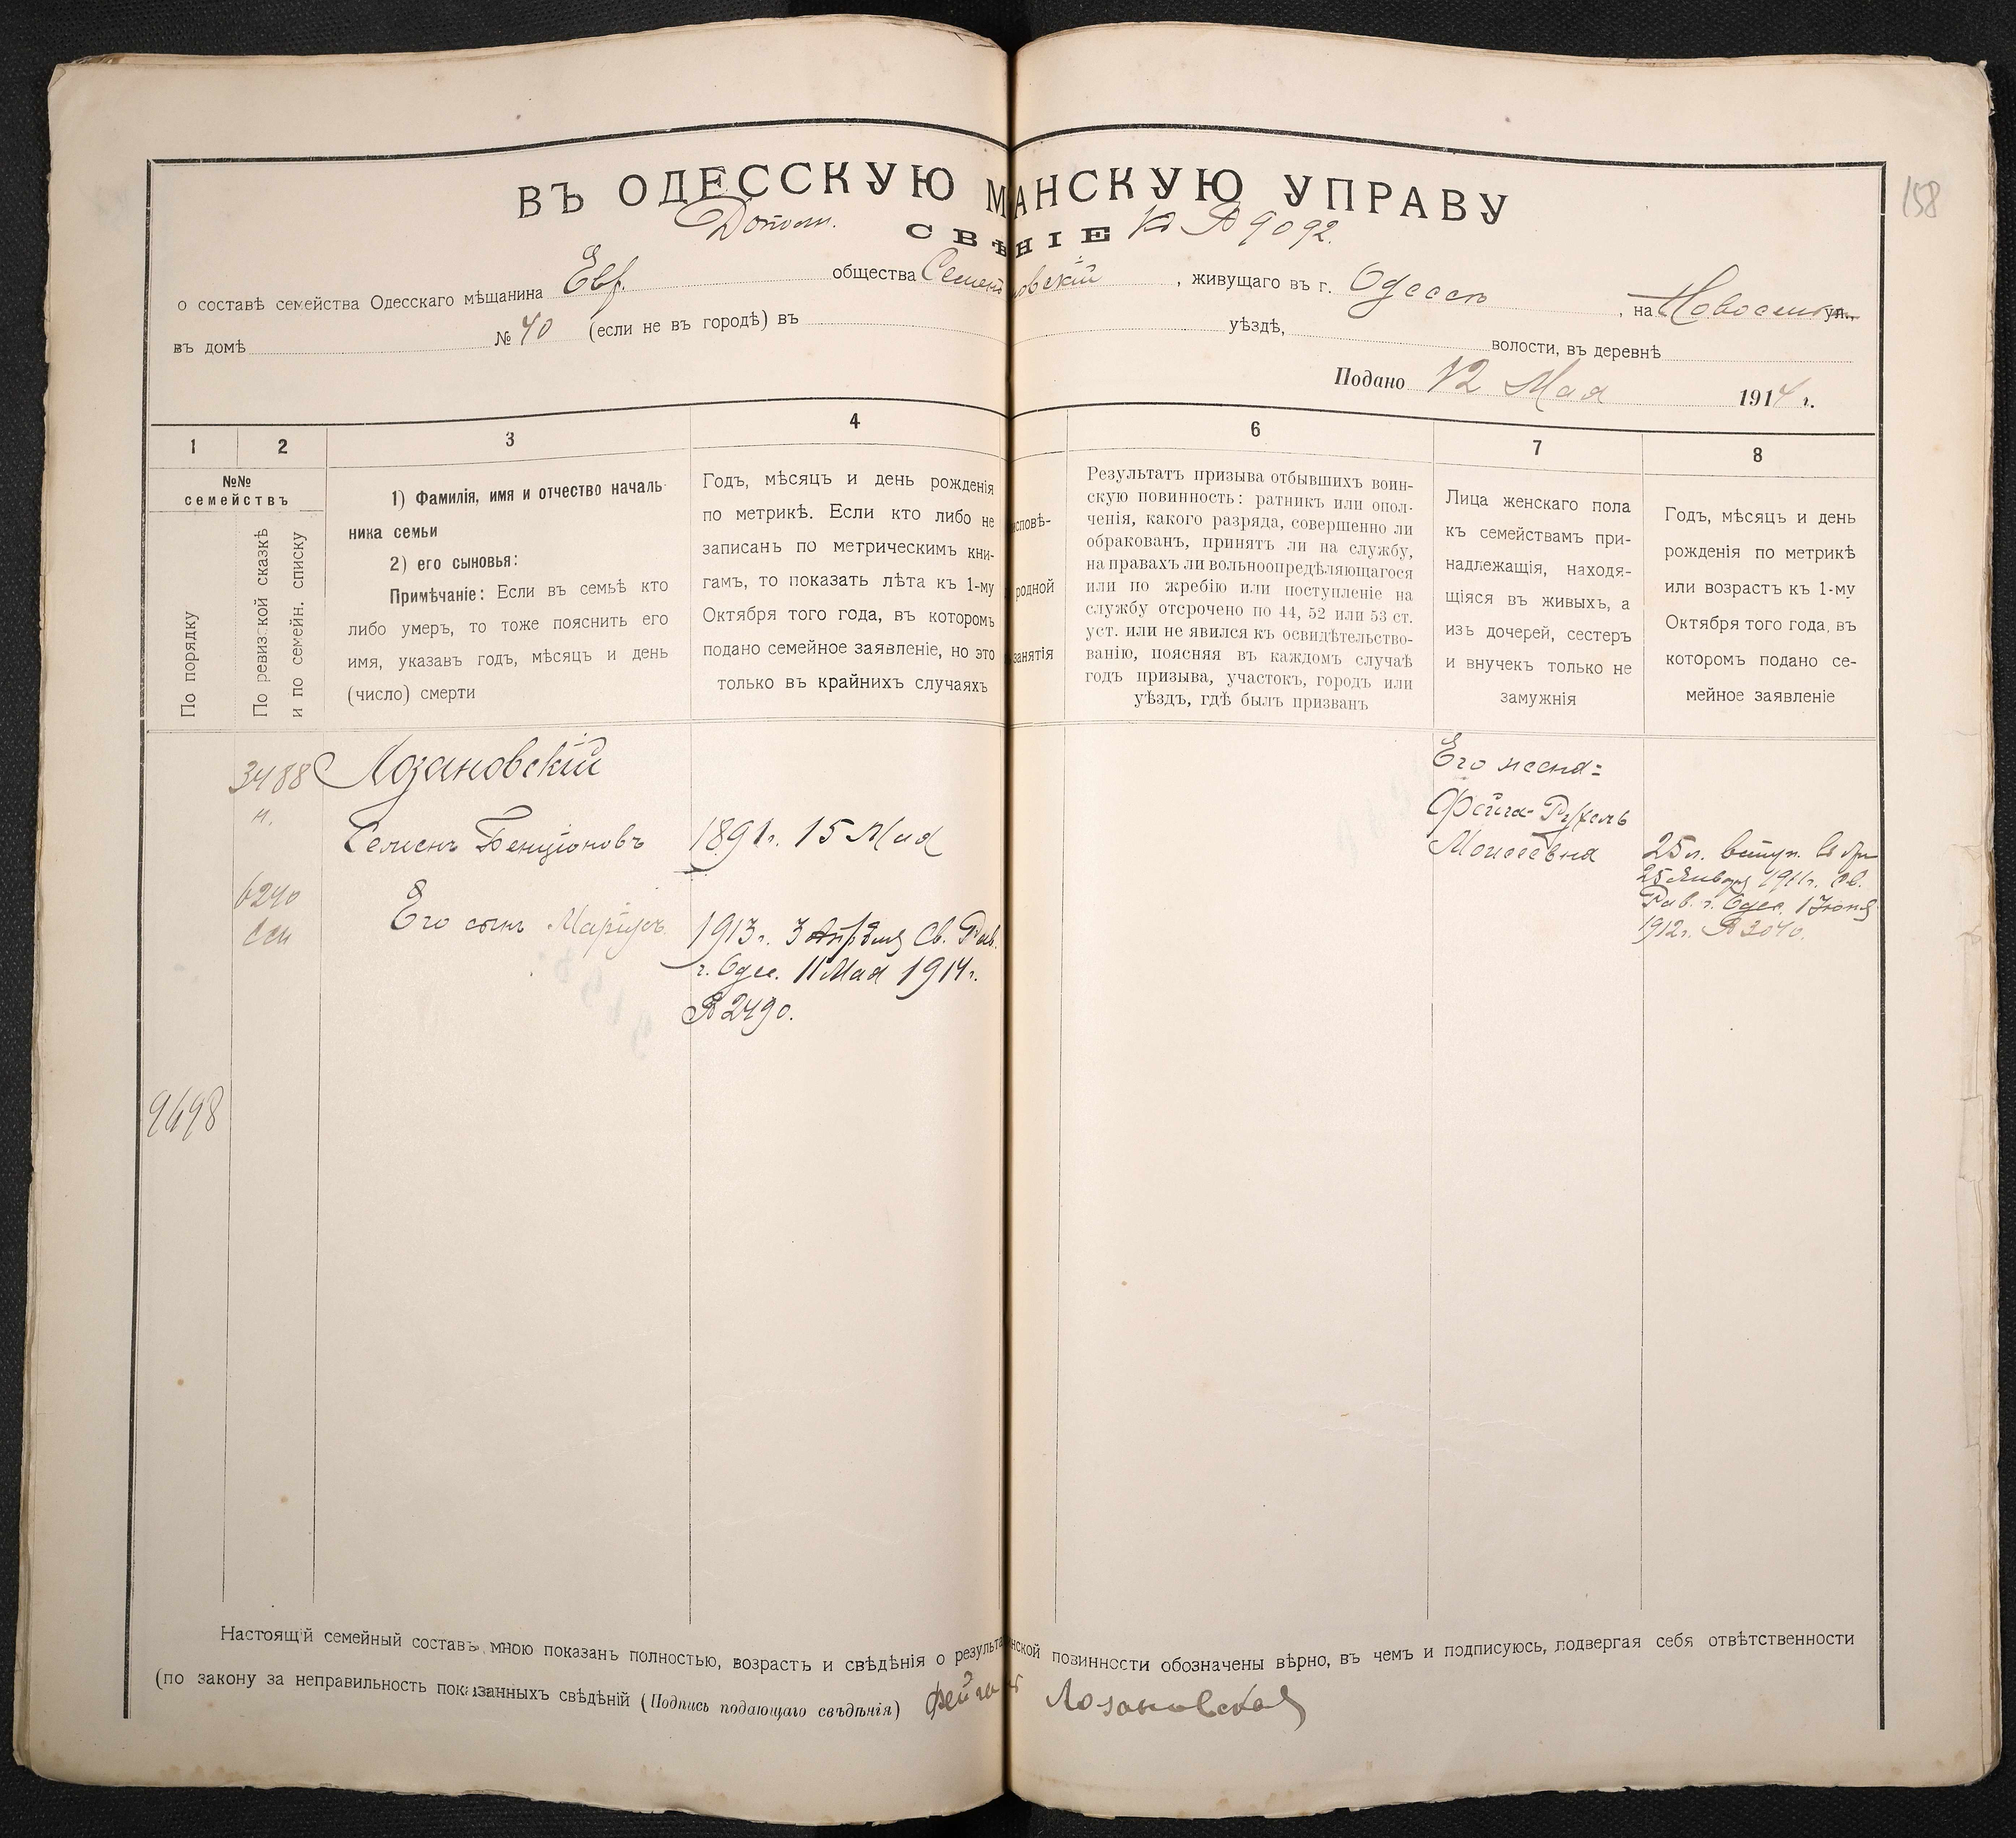 158
ВЪ ОДЕССКУЮ М АНСКУЮ УПРАВУ
Дополн. СВѢ НІЕ К № 9092.
о составѣ семейства Одесскаго мѣщанина Евр. общества Семен овскій , живущаго въ г. Одессѣ , на Новосельс ул.,
въ домѣ № 40 (если не въ городѣ) въ уѣздѣ, волости, въ деревнѣ
Подано 12 Мая 1914 г.
1 2 3 4 6 7 8
№№ семействъ
По порядку
По ревизской сказкѣ
и по семейн. списку
1) Фамилія, имя и отчество началь-
ника семьи
2) его сыновья:
Примѣчаніе: Если въ семьѣ кто
либо умеръ, то тоже пояснить его
имя, указавъ годъ, мѣсяцъ и день
(число) смерти
Годъ, мѣсяцъ и день рожденія
по метрикѣ. Если кто либо не
записанъ по метрическимъ кни-
гамъ, то показать лѣта къ 1-му
Октября того года, въ которомъ
подано семейное заявленіе, но это
только въ крайнихъ случаяхъ
исповѣ-
родной
занятія
Результатъ призыва отбывшихъ воин-
скую повинность: ратникъ или опол-
ченія, какого разряда, совершенно ли
обракованъ, принятъ ли на службу,
на правахъ ли вольноопредѣляющагося
или по жребію или поступленіе на
службу отсрочено по 44, 52 или 53 ст.
уст. или не явился къ освидѣтельство-
ванію, поясняя въ каждомъ случаѣ
годъ призыва, участокъ, городъ или
уѣздъ, гдѣ былъ призванъ
Лица женскаго пола
къ семействамъ при-
надлежащія, находя-
щіяся въ живыхъ, а
изъ дочерей, сестеръ
и внучекъ только не
замужнія
Годъ, мѣсяцъ и день
рожденія по метрикѣ
или возрастъ къ 1-му
Октября того года, въ
которомъ подано се-
мейное заявленіе
3488
н.
Лозановскій
Семенъ Бенціоновъ
1891 г. 15 Мая
6240
сем
Его сынъ Маріусъ
1913 г. 3 Апрѣля Св. Рав.
г. Одес. 11 Мая 1914 г.
№ 2490.
9498
Его жена=
Фейга-Рухель
Моисеевна
25 л. вступ. въ бр
25 Января 1911 г. Св.
Рав. г. Одес. 1 Іюня
1912 г. № 3040.
Настоящій семейный составъ, мною показанъ полностью, возрастъ и свѣдѣнія о результа нской повинности обозначены вѣрно, въ чемъ и подписуюсь, подвергая себя отвѣтственности
(по закону за неправильность показанныхъ свѣдѣній (Подпись подающаго свѣдѣнія) Фейга Лозановская